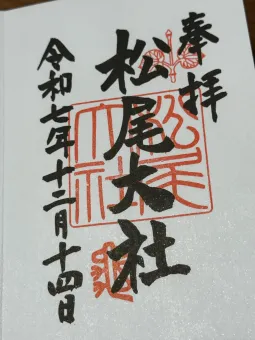 奉拝
松尾大社
松尾大社
令和七年十二月十四日